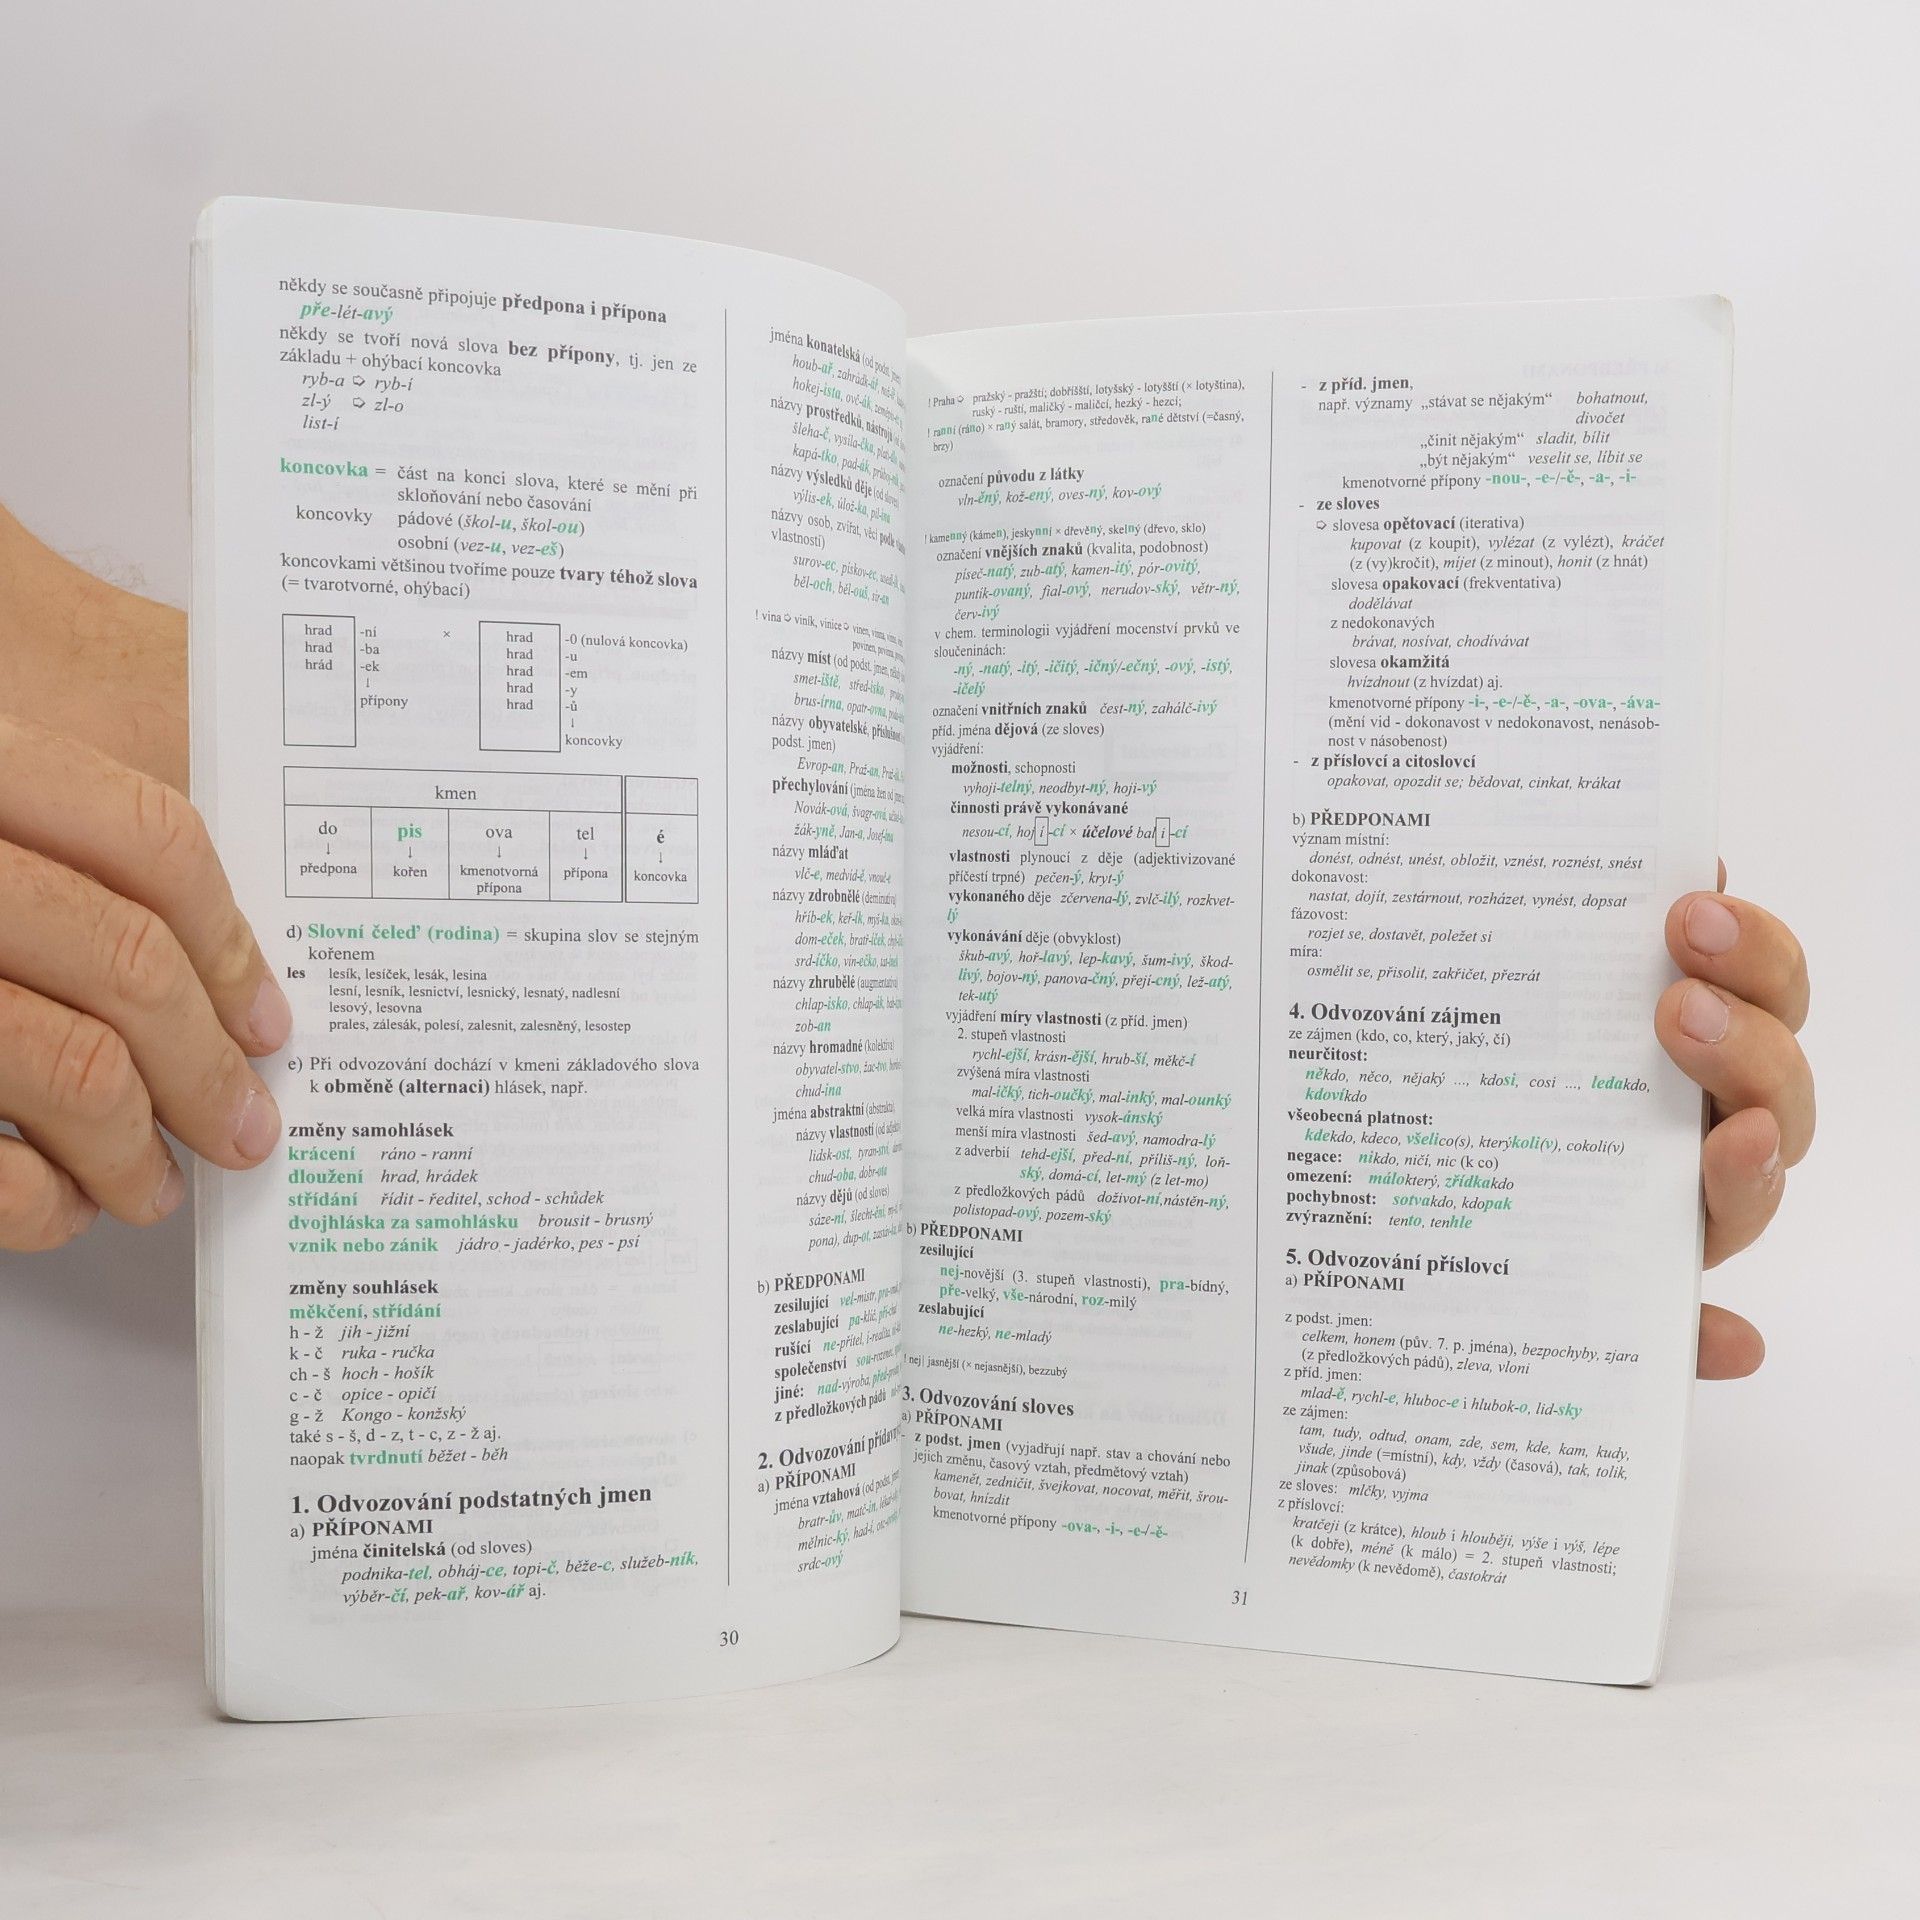 někdy se současně připojuje předpona i přípona
pře-lét-avý
někdy se tvoří nová slova bez přípony, tj. jen ze
základu + ohýbací koncovka
ryb-a ➩ ryb-í
zl-ý ➩ zl-o
list-í
koncovka = část na konci slova, které se mění při
skloňování nebo časování
koncovky pádové (škol-u, škol-ou)
osobní (vez-u, vez-eš)
koncovkami většinou tvoříme pouze tvary téhož slova
(= tvarotvorné, ohýbací)
hrad -ní × hrad -0 (nulová koncovka)
hrad -ba hrad -u
hrád -ek hrad -em
↓ hrad -y
přípony hrad -ů
↓
koncovky
kmen
do pis ova tel é
↓ ↓ ↓ ↓ ↓
předpona kořen kmenotvorná přípona koncovka
přípona
d) Slovní čeleď (rodina) = skupina slov se stejným
kořenem
les lesík, lesíček, lesák, lesina
lesní, lesník, lesnictví, lesnický, lesnatý, nadlesní
lesový, lesovna
prales, zálesák, polesí, zalesnit, zalesněný, lesostep
e) Při odvozování dochází v kmeni základového slova
k obměně (alternaci) hlásek, např.
změny samohlásek
krácení ráno - ranní
dloužení hrad, hrádek
střídání řídit - ředitel, schod - schůdek
dvojhláska za samohlásku brousit - brusný
vznik nebo zánik jádro - jadérko, pes - psí
změny souhlásek
měkčení, střídání
h - ž jih - jižní
k - č ruka - ručka
ch - š hoch - hošík
c - č opice - opičí
g - ž Kongo - konžský
také s - š, d - z, t - c, z - ž aj.
naopak tvrdnutí běžet - běh
1. Odvozování podstatných jmen
a) PŘÍPONAMI
jména činitelská (od sloves)
podnika-tel, obháj-ce, topi-č, běže-c, služeb-ník,
výběr-čí, pek-ař, kov-ář aj.
jména konatelská (od podst. jmen)
houb-ař, zahrádk-ář,
hokej-ista, ově-ák,
názvy prostředků, nástrojů
šleha-č, vysíla-čka,
kapá-tko, pad-ák,
názvy výsledků děje (od sloves)
výlis-ek, úlož-ka, pil-ina
názvy osob, zvířat, věcí podle
vlastností)
surov-ec, pískov-ec,
běl-och, běl-ouš, sir-an
! vina ➩ viník, vinice ➩ vinen, vinna,
názvy míst (od podst. jmen,
smet-iště, střed-isko,
brus-írna, opatr-ovna,
názvy obyvatelské,
podst. jmen)
Evrop-an, Praž-an,
přechylování (jména žen od
Novák-ová, švagr-ová,
žák-yně, Jan-a, Josef-ína
názvy mláďat
vlč-e, medvíd-ě, vnouč-e
názvy zdrobnělé (deminutiva)
hříb-ek, keř-ík, myš-ka,
dom-eček, bratř-íček,
srd-íčko, vín-ečko,
názvy zhrubělé (augmentativa)
chlap-isko, chlap-ák,
zob-an
názvy hromadné (kolektiva)
obyvatel-stvo, žac-tvo,
chud-ina
jména abstraktní (abstrakta)
názvy vlastností (od
lidsk-ost, tyran-ství,
chud-oba, dobr-ota
názvy dějů (od sloves)
sáze-ní, šlecht-ění,
pona), dup-ot,
b) PŘEDPONAMI
zesilující vel-mistr,
zeslabující pa-klíč,
rušící ne-přítel,
společenství sou-rozenec,
jiné: nad-výroba,
z předložkových pádů
2. Odvozování
a) PŘÍPONAMI
jména vztahová (od podst. jmen)
bratr-ův, matč-in,
mělnic-ký, had-í,
srdc-ový
30
! Praha ➩ pražský - pražští; dobříšští, lotyšský - lotyšští (× lotyština),
ruský - ruští, maličký - maličcí, hezký - hezcí;
! ranní (ráno) × raný salát, brambory, středověk, rané dětství (=časný,
brzy)
označení původu z látky
vln-ěný, kož-ený, oves-ný, kov-ový
! kamenný (kámen), jeskynní × dřevěný, skelný (dřevo, sklo)
označení vnějších znaků (kvalita, podobnost)
píseč-natý, zub-atý, kamen-itý, pór-ovitý,
puntík-ovaný, fial-ový, nerudov-ský, větr-ný,
červ-ivý
v chem. terminologii vyjádření mocenství prvků ve
sloučeninách:
-ný, -natý, -itý, -ičitý, -ičný/-ečný, -ový, -istý,
-ičelý
označení vnitřních znaků čest-ný, zahálč-ivý
příd. jména dějová (ze sloves)
vyjádření:
možnosti, schopnosti
vyhoji-telný, neodbyt-ný, hoji-vý
činnosti právě vykonávané
nesou-cí, hoj í -cí × účelové bal i -cí
vlastnosti plynoucí z děje (adjektivizované
příčestí trpné) pečen-ý, kryt-ý
vykonaného děje zčervena-lý, zvlč-ilý, rozkvet-
lý
vykonávání děje (obvyklost)
škub-avý, hoř-lavý, lep-kavý, šum-ivý, škod-
livý, bojov-ný, panova-čný, přejí-cný, lež-atý,
tek-utý
vyjádření míry vlastnosti (z příd. jmen)
2. stupeň vlastnosti
rychl-ejší, krásn-ější, hrub-ší, měkč-í
zvýšená míra vlastnosti
mal-ičký, tich-oučký, mal-inký, mal-ounký
velká míra vlastnosti vysok-ánský
menší míra vlastnosti šed-avý, namodra-lý
z adverbií tehd-ejší, před-ní, příliš-ný, loň-
ský, domá-cí, let-mý (z let-mo)
z předložkových pádů doživot-ní,nástěn-ný,
polistopad-ový, pozem-ský
b) PŘEDPONAMI
zesilující
nej-novější (3. stupeň vlastnosti), pra-bídný,
pře-velký, vše-národní, roz-milý
zeslabující
ne-hezký, ne-mladý
! nej| jasnější (× nejasnější), bezzubý
3. Odvozování sloves
a) PŘÍPONAMI
- z podst. jmen (vyjadřují např. stav a chování nebo
jejich změnu, časový vztah, předmětový vztah)
kamenět, zedničit, švejkovat, nocovat, měřit, šrou-
bovat, hnízdit
kmenotvorné přípony -ova-, -i-, -e-/-ě-
31
- z příd. jmen,
např. významy „stávat se nějakým“ bohatnout,
divočet
„činit nějakým“ sladit, bílit
„být nějakým“ veselit se, líbit se
kmenotvorné přípony -nou-, -e-/-ě-, -a-, -i-
- ze sloves
➩ slovesa opětovací (iterativa)
kupovat (z koupit), vylézat (z vylézt), kráčet
(z (vy)kročit), míjet (z minout), honit (z hnát)
slovesa opakovací (frekventativa)
dodělávat
z nedokonavých
brávat, nosívat, chodívávat
slovesa okamžitá
hvízdnout (z hvízdat) aj.
kmenotvorné přípony -i-, -e-/-ě-, -a-, -ova-, -áva-
(mění vid - dokonavost v nedokonavost, nenásob-
nost v násobenost)
- z příslovcí a citoslovcí
opakovat, opozdit se; bědovat, cinkat, krákat
b) PŘEDPONAMI
význam místní:
donést, odnést, unést, obložit, vznést, roznést, snést
dokonavost:
nastat, dojít, zestárnout, rozházet, vynést, dopsat
fázovost:
rozjet se, dostavět, poležet si
míra:
osmělit se, přisolit, zakřičet, přezrát
4. Odvozování zájmen
ze zájmen (kdo, co, který, jaký, čí)
neurčitost:
někdo, něco, nějaký ..., kdosi, cosi ..., ledakdo,
kdovíkdo
všeobecná platnost:
kdekdo, kdeco, všelico(s), kterýkoli(v), cokoli(v)
negace: nikdo, ničí, nic (k co)
omezení: málokterý, zřídkakdo
pochybnost: sotvakdo, kdopak
zvýraznění: tento, tenhle
5. Odvozování příslovcí
a) PŘÍPONAMI
z podst. jmen:
celkem, honem (pův. 7. p. jména), bezpochyby, zjara
(z předložkových pádů), zleva, vloni
z příd. jmen:
mlad-ě, rychl-e, hluboc-e i hlubok-o, lid-sky
ze zájmen:
tam, tudy, odtud, onam, zde, sem, kde, kam, kudy,
všude, jinde (=místní), kdy, vždy (časová), tak, tolik,
jinak (způsobová)
ze sloves: mlčky, vyjma
z příslovcí:
kratčeji (z krátce), hloub i hlouběji, výše i výš, lépe
(k dobře), méně (k málo) = 2. stupeň vlastnosti;
nevědomky (k nevědomě), častokrát